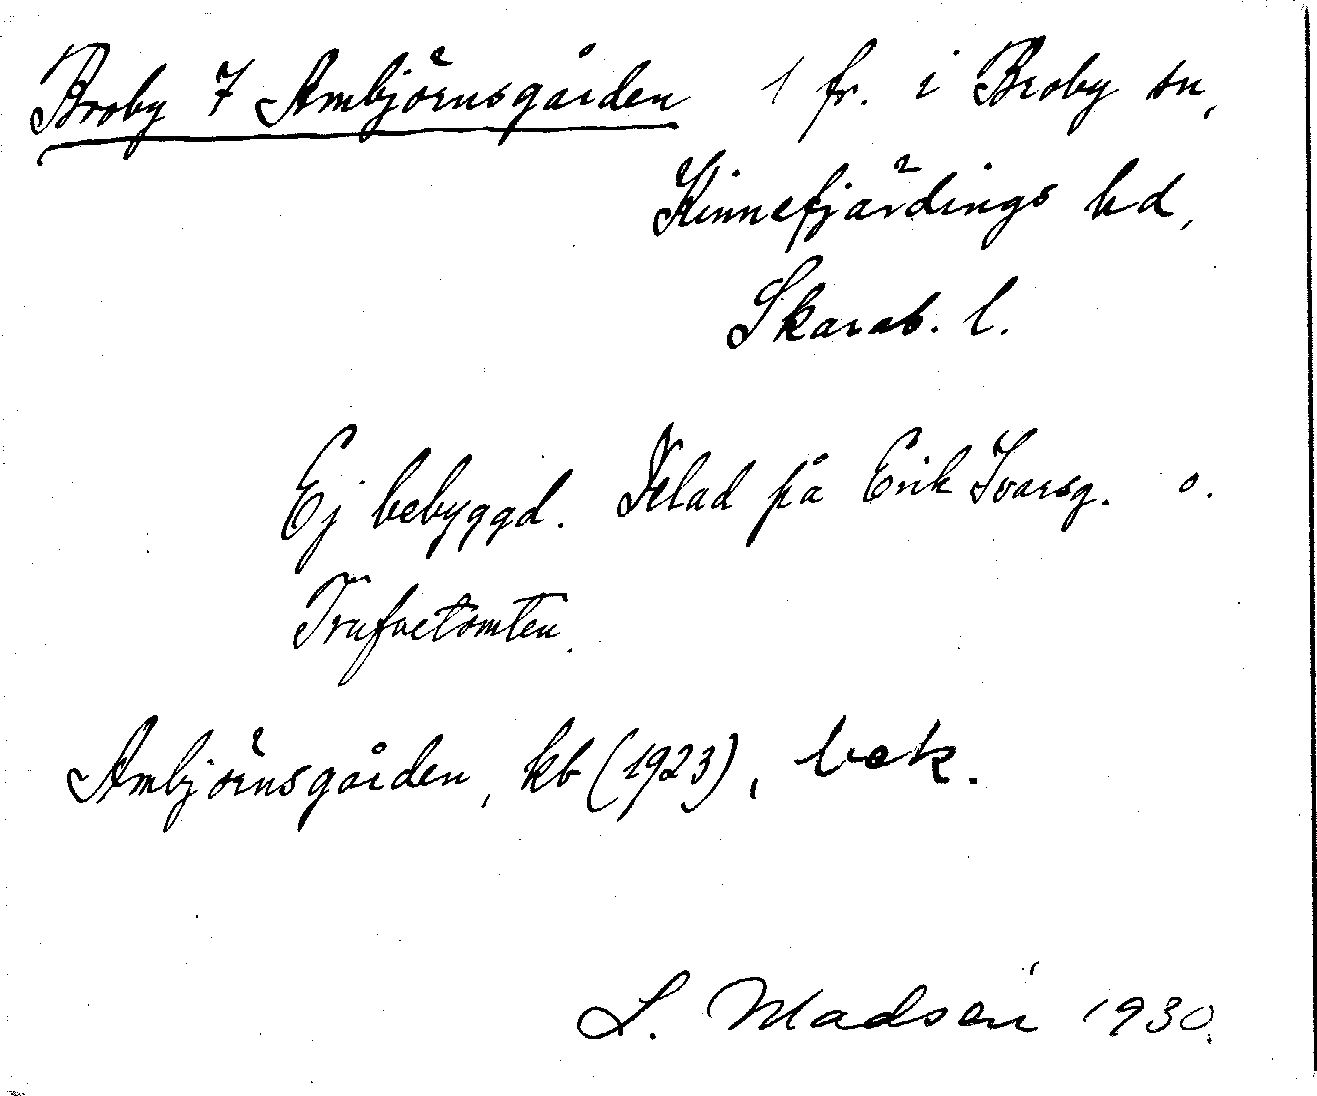 Broby 7 Ambjörnsgården 1 fr. i Broby sn,
Kinnefjärdings hd,
Skarab. l.
Ej bebyggd. Delad på Erik Ivarsg. o.
Trufvetomten.
Ambjörnsgården, kb (1923), bek.
L. Madsén 1930.